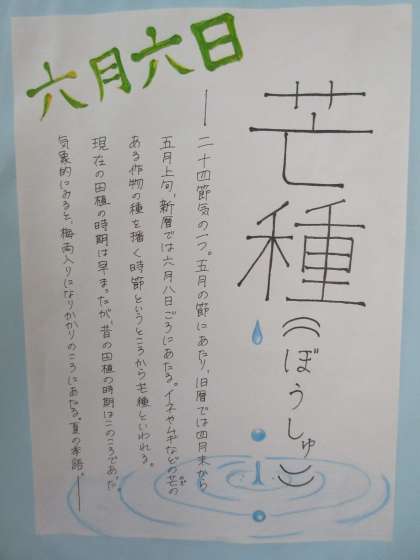 六月六日
芒種（ぼうしゅ）
二十四節気の一つ。五月の節にあたり、旧暦では四月末から
五月上旬、新暦では六月八日ごろにあたる。イネやムギなどの芒の
ある作物の種を播く時節というところから芒種といわれる。
現在の田植の時期は早まったが、昔の田植の時期はこのころであった。
気象的にみると、梅雨入りになりかかりのころにあたる。夏の季語。